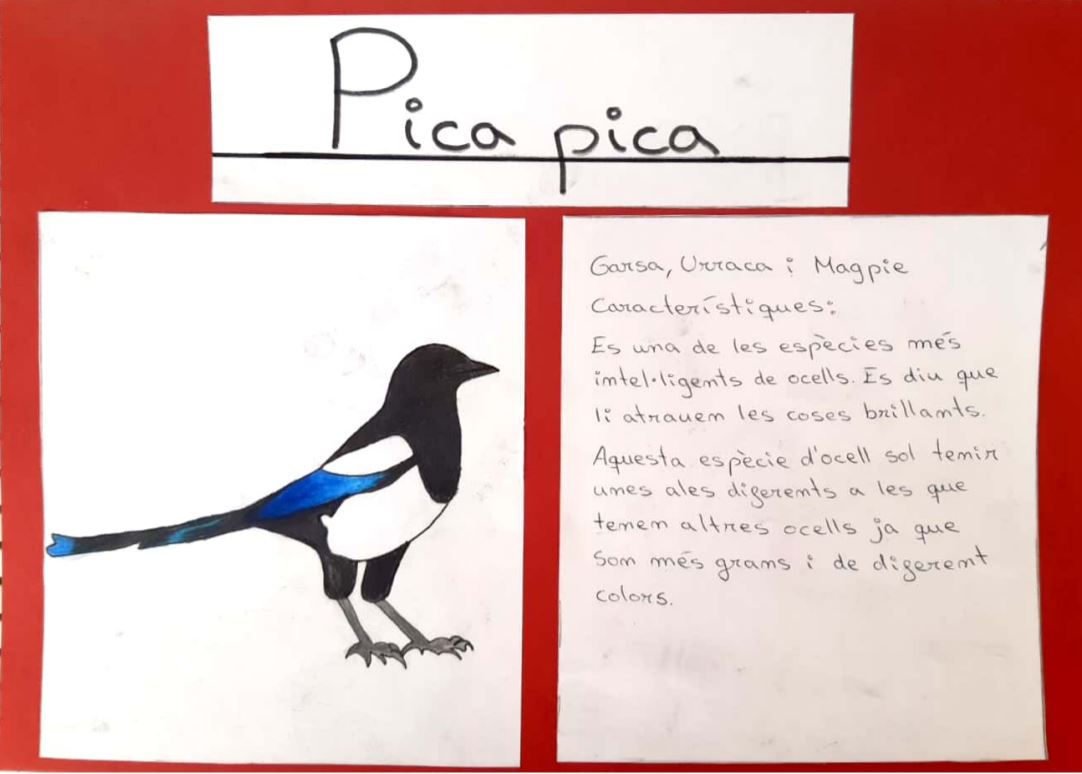 Pica pica
Garsa, Urraca i Magpie
Característiques:
Es una de les espècies més
intel·ligents de ocells. Es diu que
li atrauen les coses brillants.
Aquesta espècie d'ocell sol tenir
unes ales diferents a les que
tenen altres ocells ja que
son més grans i de diferent
colors.